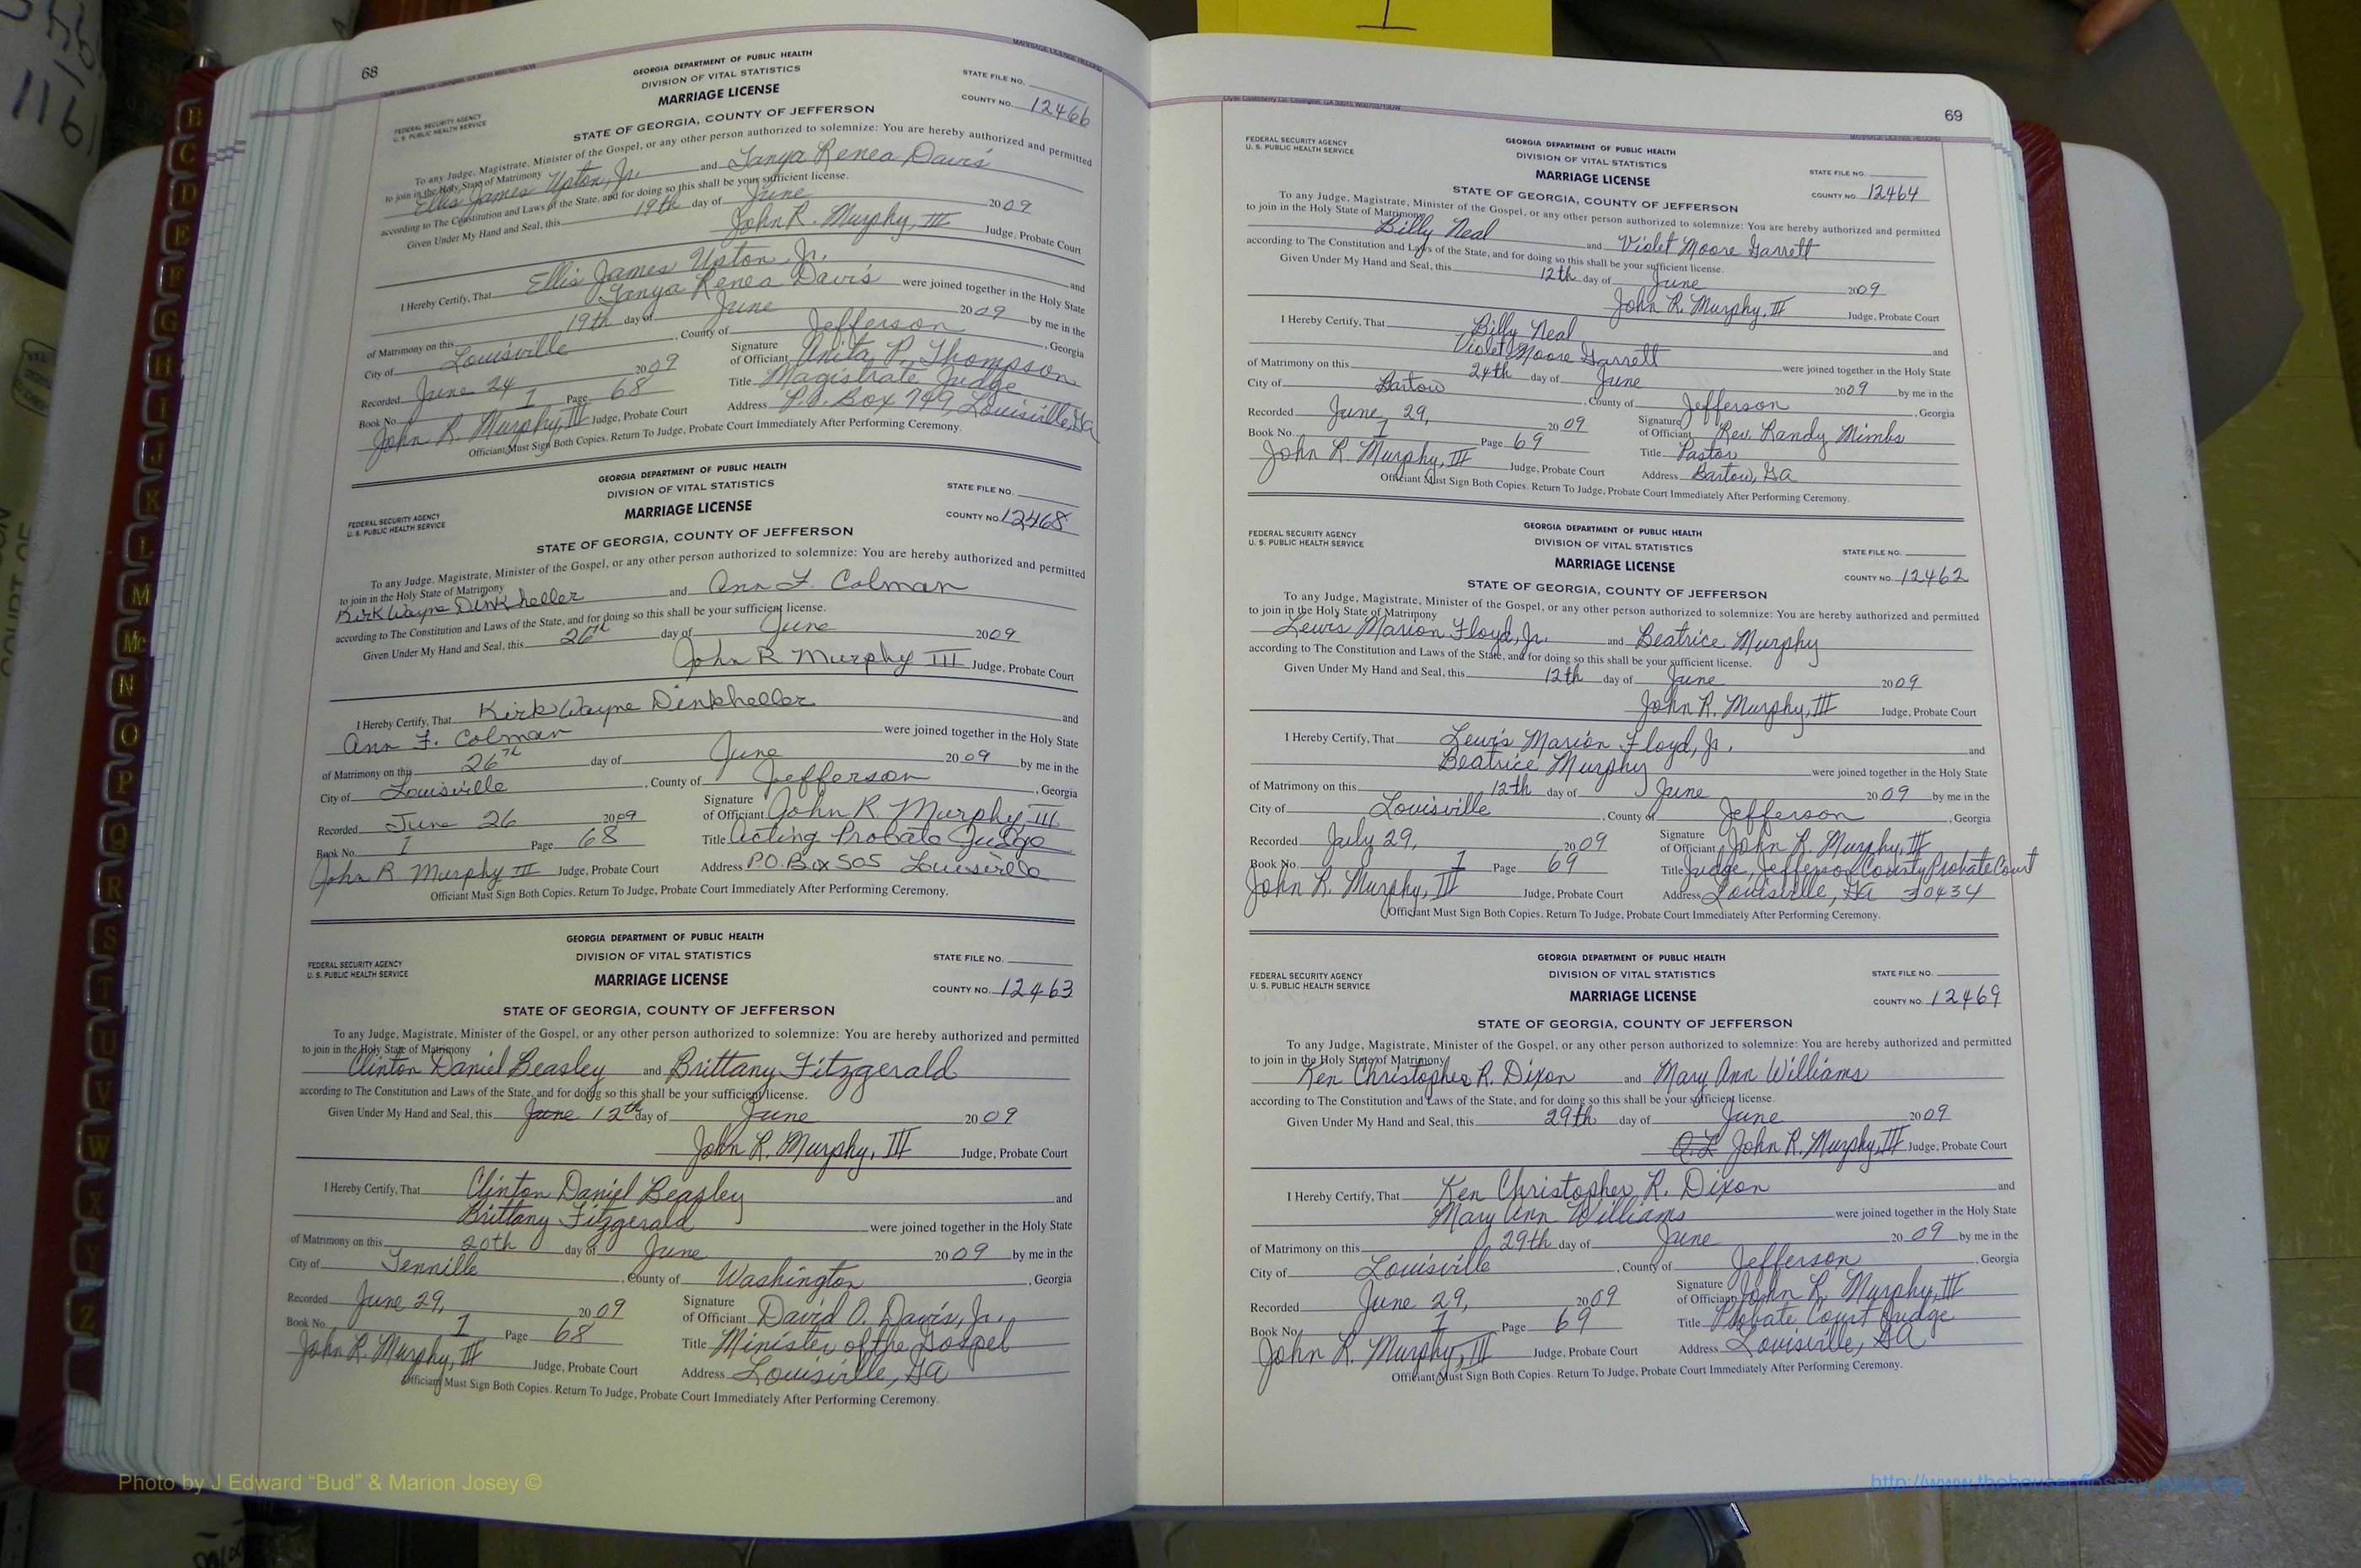 68
Clyde Castleberry Co. Covington, GA 30015
MARRIAGE LICENSE RECORD
GEORGIA DEPARTMENT OF PUBLIC HEALTH
DIVISION OF VITAL STATISTICS
STATE FILE NO.
MARRIAGE LICENSE
COUNTY NO. 12466
FEDERAL SECURITY AGENCY
U. S. PUBLIC HEALTH SERVICE
STATE OF GEORGIA, COUNTY OF JEFFERSON
To any Judge, Magistrate, Minister of the Gospel, or any other person authorized to solemnize: You are hereby authorized and permitted
to join in the Holy State of Matrimony
Ellis James Upton, Jr. and Tanya Renea Davis
according to The Constitution and Laws of the State, and for doing so this shall be your sufficient license.
Given Under My Hand and Seal, this 19th day of June 2009
John R. Murphy, III Judge, Probate Court
I Hereby Certify, That Ellis James Upton, Jr. and
Tanya Renea Davis were joined together in the Holy State
of Matrimony on this 19th day of June 2009 by me in the
City of Louisville, County of Jefferson, Georgia
Recorded June 24 2009 Signature of Officiant Anita P. Thompson
Book No. 1 Page 68 Title Magistrate Judge
John R. Murphy, III Judge, Probate Court Address P.O. Box 749, Louisville, Ga
Officiant Must Sign Both Copies. Return To Judge, Probate Court Immediately After Performing Ceremony.
GEORGIA DEPARTMENT OF PUBLIC HEALTH
DIVISION OF VITAL STATISTICS
STATE FILE NO.
MARRIAGE LICENSE
COUNTY NO. 12468
FEDERAL SECURITY AGENCY
U. S. PUBLIC HEALTH SERVICE
STATE OF GEORGIA, COUNTY OF JEFFERSON
To any Judge, Magistrate, Minister of the Gospel, or any other person authorized to solemnize: You are hereby authorized and permitted
to join in the Holy State of Matrimony
Kirk Wayne Dinkheller and Ann F. Colman
according to The Constitution and Laws of the State, and for doing so this shall be your sufficient license.
Given Under My Hand and Seal, this 26th day of June 2009
John R Murphy III Judge, Probate Court
I Hereby Certify, That Kirk Wayne Dinkheller and
Ann F. Colman were joined together in the Holy State
of Matrimony on this 26th day of June 2009 by me in the
City of Louisville, County of Jefferson, Georgia
Recorded June 26 2009 Signature of Officiant John R Murphy III
Book No. 1 Page 68 Title Acting Probate Judge
John R Murphy III Judge, Probate Court Address P.O. Box 505 Louisville
Officiant Must Sign Both Copies. Return To Judge, Probate Court Immediately After Performing Ceremony.
GEORGIA DEPARTMENT OF PUBLIC HEALTH
DIVISION OF VITAL STATISTICS
STATE FILE NO.
FEDERAL SECURITY AGENCY
U. S. PUBLIC HEALTH SERVICE
MARRIAGE LICENSE
COUNTY NO. 12463
STATE OF GEORGIA, COUNTY OF JEFFERSON
To any Judge, Magistrate, Minister of the Gospel, or any other person authorized to solemnize: You are hereby authorized and permitted
to join in the Holy State of Matrimony
Clinton Daniel Beasley and Brittany Fitzgerald
according to The Constitution and Laws of the State, and for doing so this shall be your sufficient license.
Given Under My Hand and Seal, this June 12th day of June 2009
John R. Murphy, III Judge, Probate Court
I Hereby Certify, That Clinton Daniel Beasley and
Brittany Fitzgerald were joined together in the Holy State
of Matrimony on this 20th day of June 2009 by me in the
City of Tennille, County of Washington, Georgia
Recorded June 29, 2009 Signature of Officiant David O. Davis, Jr.
Book No. 1 Page 68 Title Minister of the Gospel
John R. Murphy, III Judge, Probate Court Address Louisville, GA
Officiant Must Sign Both Copies. Return To Judge, Probate Court Immediately After Performing Ceremony.
1
69
Clyde Castleberry Co. Covington, GA 30015
MARRIAGE LICENSE RECORD
FEDERAL SECURITY AGENCY
U. S. PUBLIC HEALTH SERVICE
GEORGIA DEPARTMENT OF PUBLIC HEALTH
DIVISION OF VITAL STATISTICS
STATE FILE NO.
MARRIAGE LICENSE
COUNTY NO. 12464
STATE OF GEORGIA, COUNTY OF JEFFERSON
To any Judge, Magistrate, Minister of the Gospel, or any other person authorized to solemnize: You are hereby authorized and permitted
to join in the Holy State of Matrimony
Billy Neal and Violet Moore Garrett
according to The Constitution and Laws of the State, and for doing so this shall be your sufficient license.
Given Under My Hand and Seal, this 12th day of June 2009
John R. Murphy, III Judge, Probate Court
I Hereby Certify, That Billy Neal and
Violet Moore Garrett were joined together in the Holy State
of Matrimony on this 24th day of June 2009 by me in the
City of Bartow, County of Jefferson, Georgia
Recorded June 29, 2009 Signature of Officiant Rev. Randy Mimbs
Book No. 1 Page 69 Title Pastor
John R. Murphy, III Judge, Probate Court Address Bartow, GA
Officiant Must Sign Both Copies. Return To Judge, Probate Court Immediately After Performing Ceremony.
FEDERAL SECURITY AGENCY
U. S. PUBLIC HEALTH SERVICE
GEORGIA DEPARTMENT OF PUBLIC HEALTH
DIVISION OF VITAL STATISTICS
STATE FILE NO.
MARRIAGE LICENSE
COUNTY NO. 12462
STATE OF GEORGIA, COUNTY OF JEFFERSON
To any Judge, Magistrate, Minister of the Gospel, or any other person authorized to solemnize: You are hereby authorized and permitted
to join in the Holy State of Matrimony
Lewis Marion Floyd, Jr. and Beatrice Murphy
according to The Constitution and Laws of the State, and for doing so this shall be your sufficient license.
Given Under My Hand and Seal, this 12th day of June 2009
John R. Murphy, III Judge, Probate Court
I Hereby Certify, That Lewis Marion Floyd, Jr. and
Beatrice Murphy were joined together in the Holy State
of Matrimony on this 12th day of June 2009 by me in the
City of Louisville, County of Jefferson, Georgia
Recorded July 29, 2009 Signature of Officiant John R. Murphy, III
Book No. 1 Page 69 Title Judge, Jefferson County Probate Court
John R. Murphy, III Judge, Probate Court Address Louisville, GA 30434
Officiant Must Sign Both Copies. Return To Judge, Probate Court Immediately After Performing Ceremony.
GEORGIA DEPARTMENT OF PUBLIC HEALTH
FEDERAL SECURITY AGENCY
U. S. PUBLIC HEALTH SERVICE
DIVISION OF VITAL STATISTICS
STATE FILE NO.
MARRIAGE LICENSE
COUNTY NO. 12469
STATE OF GEORGIA, COUNTY OF JEFFERSON
To any Judge, Magistrate, Minister of the Gospel, or any other person authorized to solemnize: You are hereby authorized and permitted
to join in the Holy State of Matrimony
Ken Christopher R. Dixon and Mary Ann Williams
according to The Constitution and Laws of the State, and for doing so this shall be your sufficient license.
Given Under My Hand and Seal, this 29th day of June 2009
John R. Murphy, III Judge, Probate Court
I Hereby Certify, That Ken Christopher R. Dixon and
Mary Ann Williams were joined together in the Holy State
of Matrimony on this 29th day of June 2009 by me in the
City of Louisville, County of Jefferson, Georgia
Recorded June 29, 2009 Signature of Officiant John R. Murphy, III
Book No. 1 Page 69 Title Probate Court Judge
John R. Murphy, III Judge, Probate Court Address Louisville, GA
Officiant Must Sign Both Copies. Return To Judge, Probate Court Immediately After Performing Ceremony.
B
C
D
E
F
G
H
I
J
K
L
M
Mc
N
O
P
Q
R
S
T
U
V
W
X
Y
Z
Photo by J Edward “Bud” & Marion Josey ©